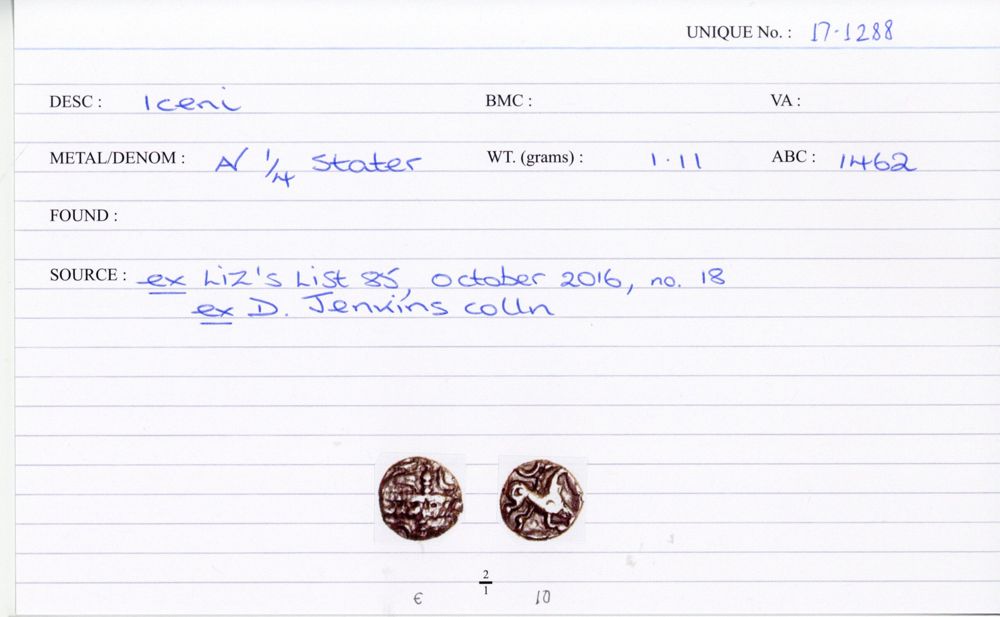 UNIQUE No. : 17·1288
DESC : Iceni BMC : VA :
METAL/DENOM : N 1/4 Stater WT. (grams) : 1·11 ABC : 1462
FOUND :
SOURCE : ex Liz's List 85, October 2016, no. 18
ex D. Jenkins colln
2
1
€ 10